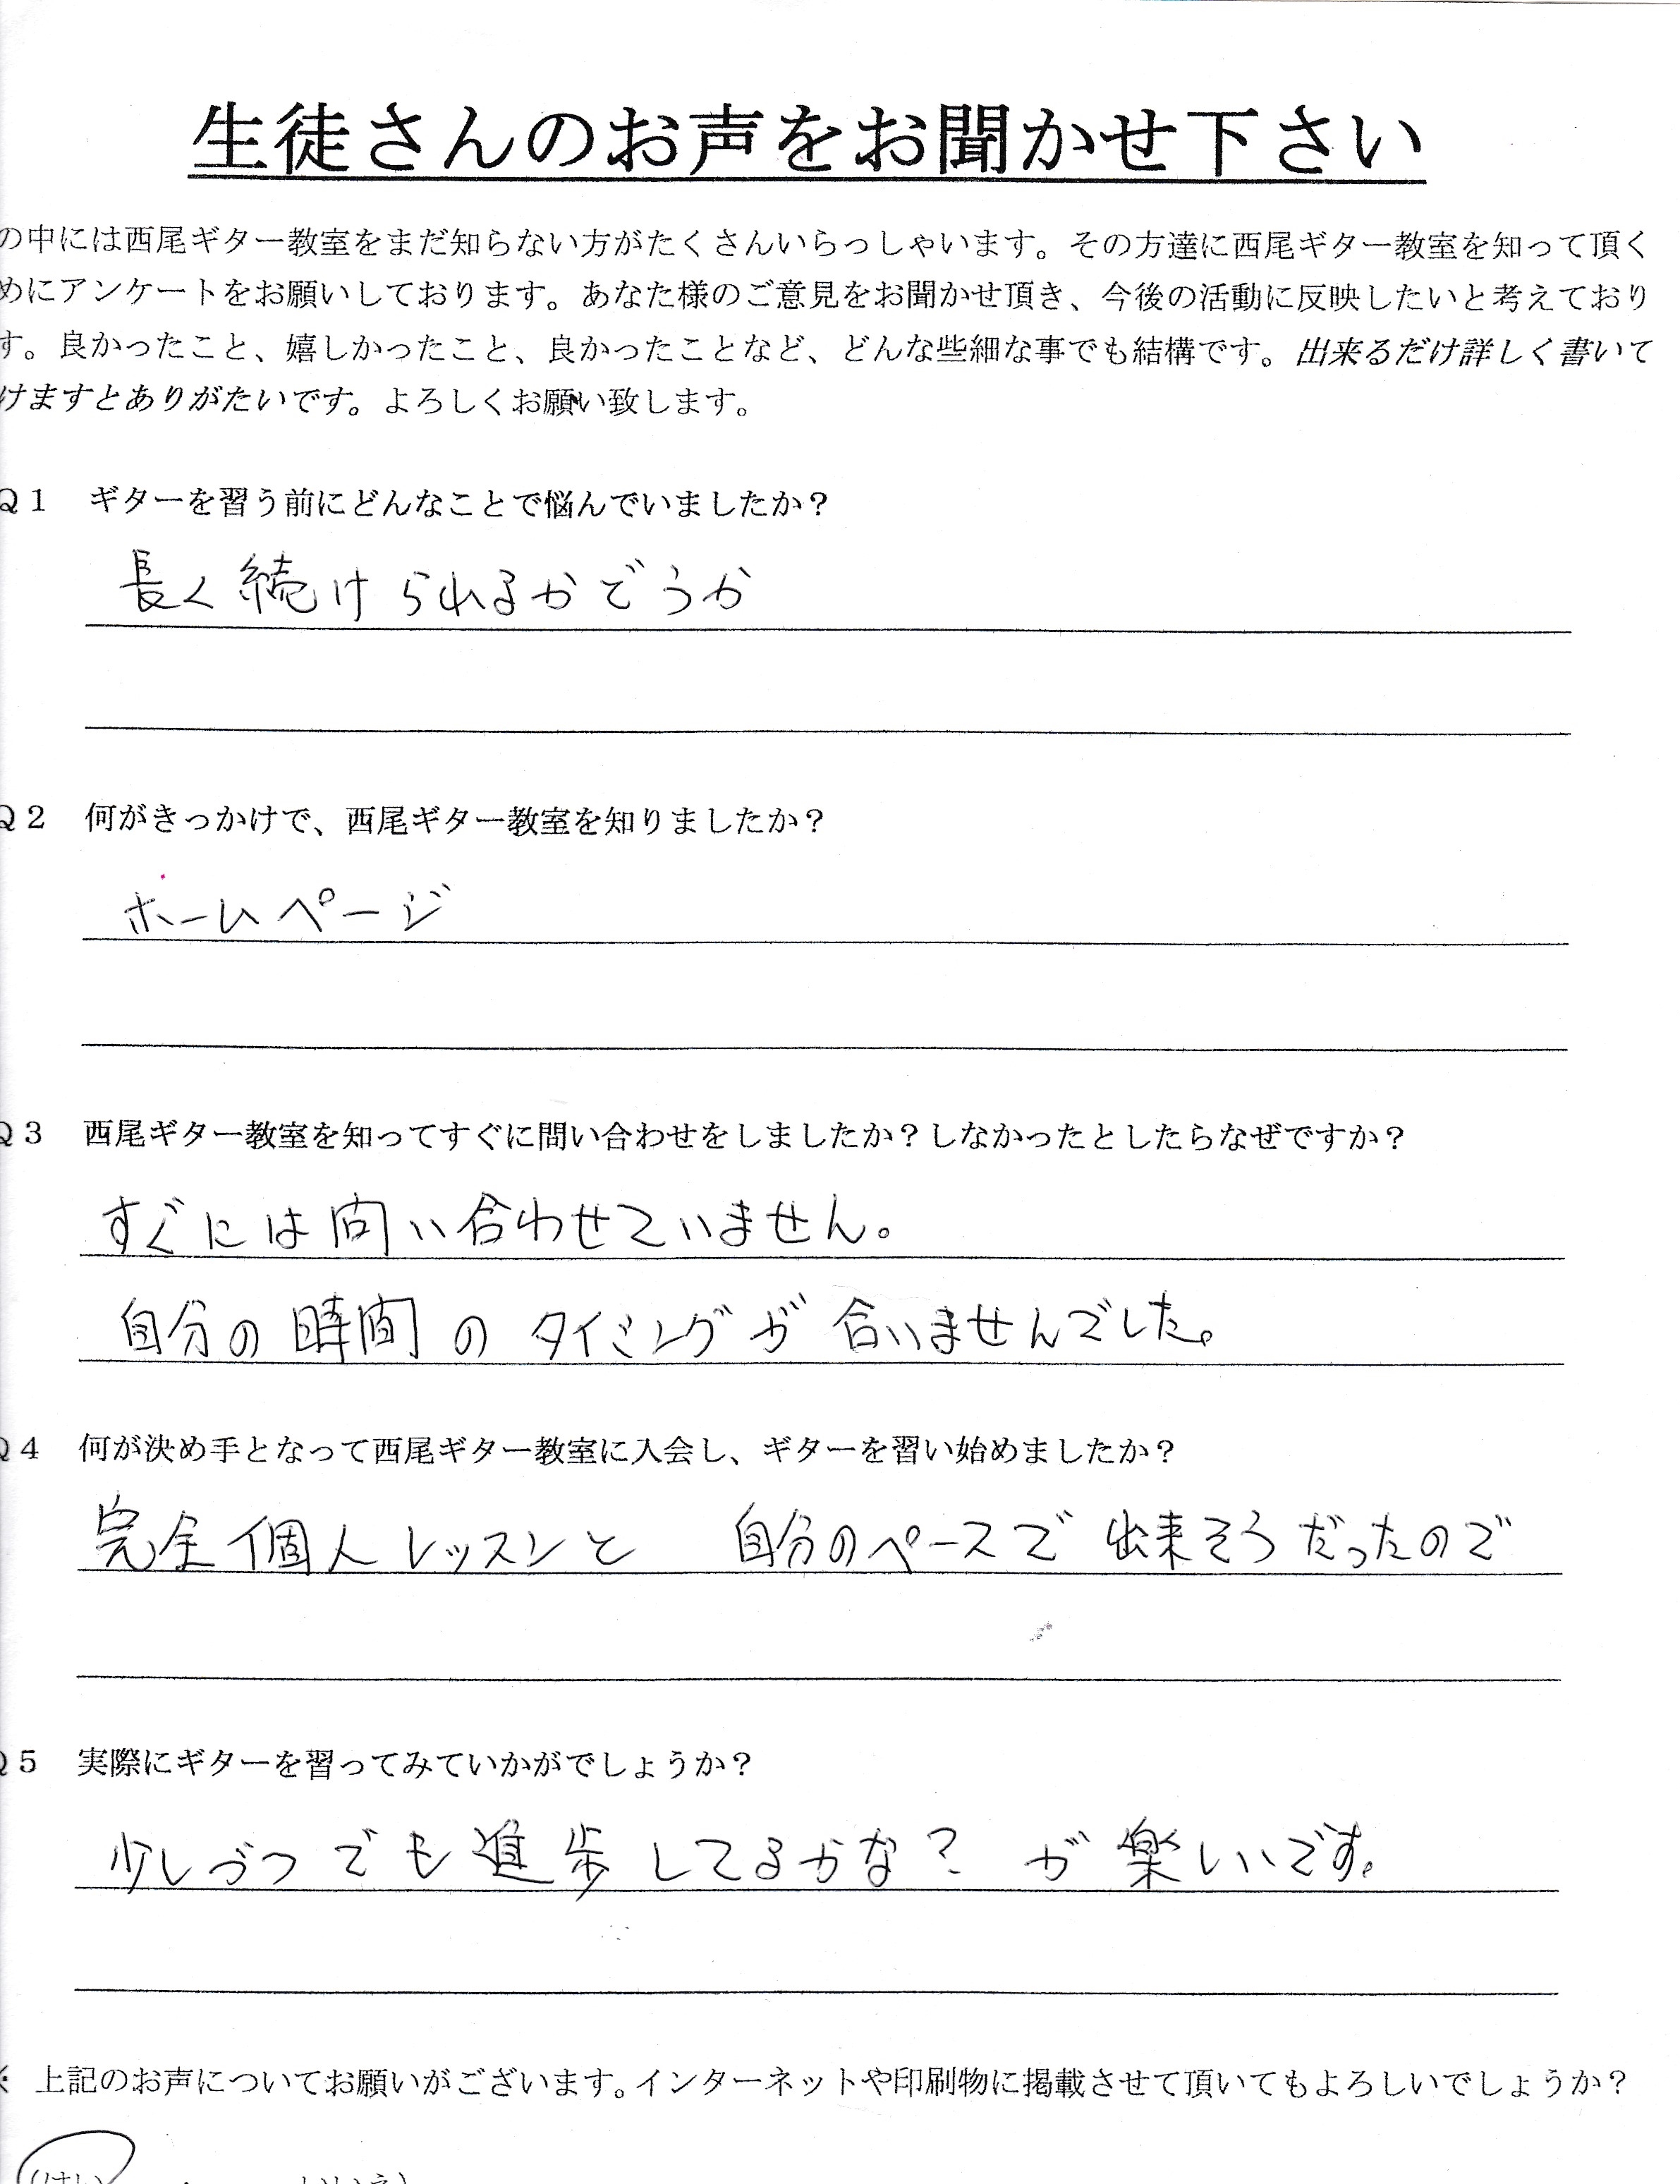 生徒さんのお声をお聞かせ下さい
の中には西尾ギター教室をまだ知らない方がたくさんいらっしゃいます。その方達に西尾ギター教室を知って頂く
めにアンケートをお願いしております。あなた様のご意見をお聞かせ頂き、今後の活動に反映したいと考えており
す。良かったこと、嬉しかったこと、良かったことなど、どんな些細な事でも結構です。出来るだけ詳しく書いて
けますとありがたいです。よろしくお願い致します。
Q1 ギターを習う前にどんなことで悩んでいましたか？
長く続けられるかどうか
Q2 何がきっかけで、西尾ギター教室を知りましたか？
ホームページ
Q3 西尾ギター教室を知ってすぐに問い合わせをしましたか？しなかったとしたらなぜですか？
すぐには問い合わせていません。
自分の時間のタイミングが合いませんでした。
Q4 何が決め手となって西尾ギター教室に入会し、ギターを習い始めましたか？
完全個人レッスンと 自分のペースで出来そうだったので
Q5 実際にギターを習ってみていかがでしょうか？
少しづつでも進歩してるかな？が楽しいです。
※ 上記のお声についてお願いがございます。インターネットや印刷物に掲載させて頂いてもよろしいでしょうか？
（はい ・ いいえ）